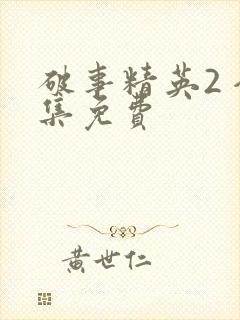 破事精英2全
集免费
黄世仁